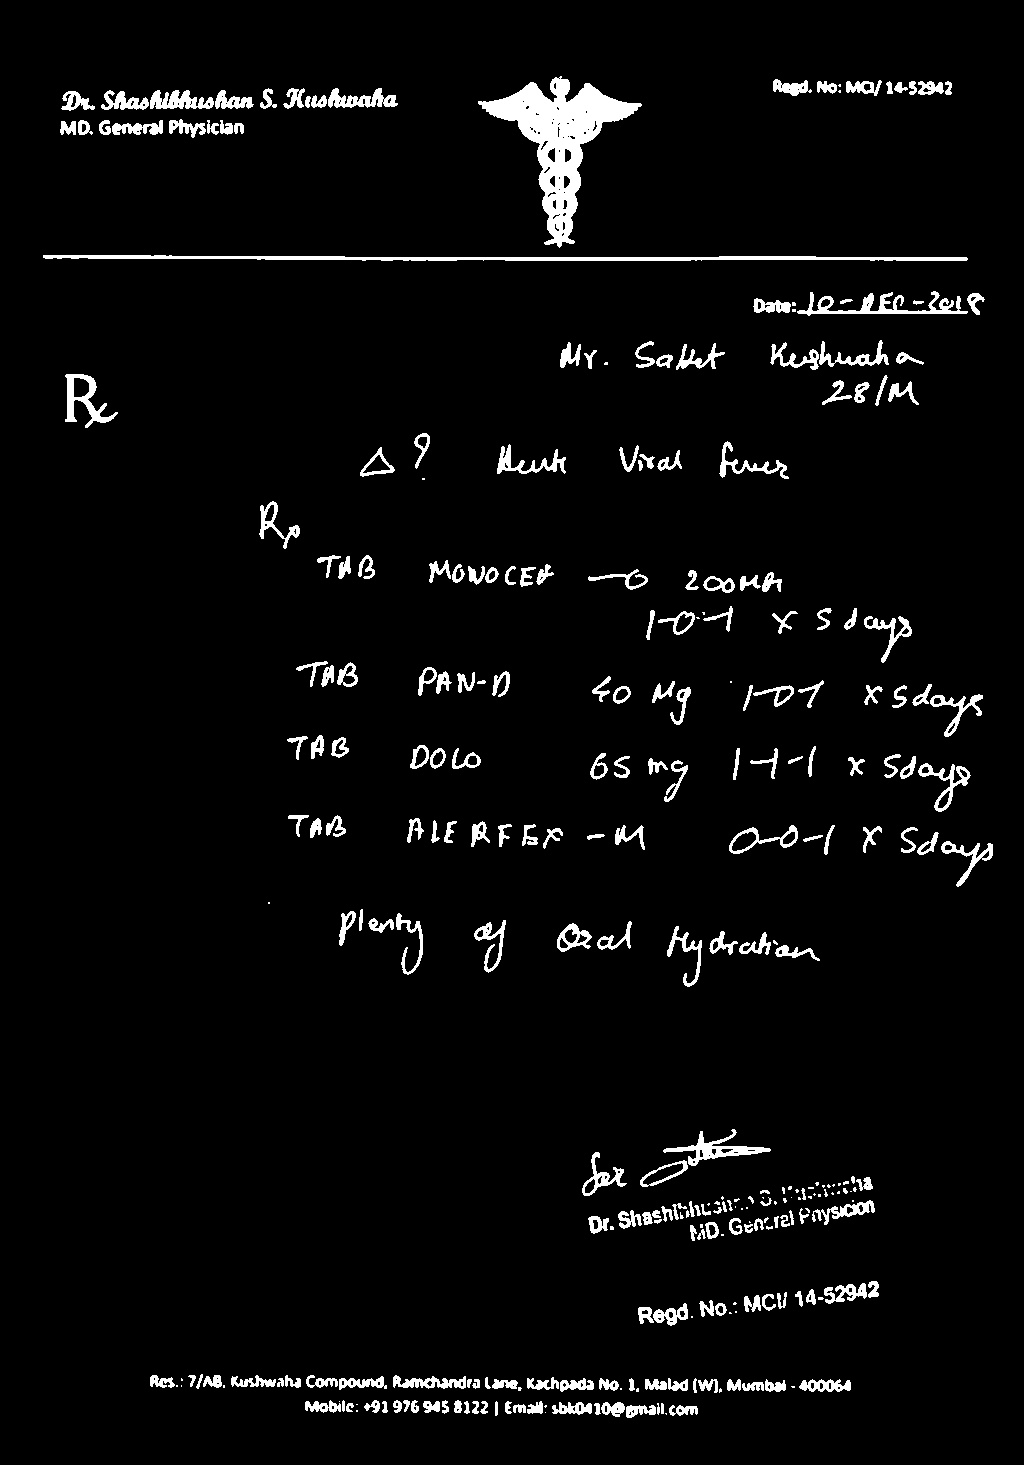 Dr. Shashibhushan S. Kushwaha
MD. General Physician
Regd. No: MCI/ 14-52942
Date: 10-DEC-2018
Mr. Kushwaha
28/M
Rx
Δ? Acute Viral fever
Rx
TAB MONOCEF -O 200MG
1-0-1 x 5 days
TAB PAN-D 40 Mg 1-0-1 x 5days
TAB DOLO 65 mg 1-1-1 x 5days
TAB ALERFEX -M 0-0-1 x 5days
Plenty of Oral Hydration
for
Dr. Shashibhushan S. Kushwaha
MD. General Physician
Regd. No.: MCI/ 14-52942
Res.: 7/AB, Kushwaha Compound, Ramchandra Lane, Kachpada No. 1, Malad (W), Mumbai - 400064
Mobile: +91 976 945 8122 | Email: sbk0410@gmail.com